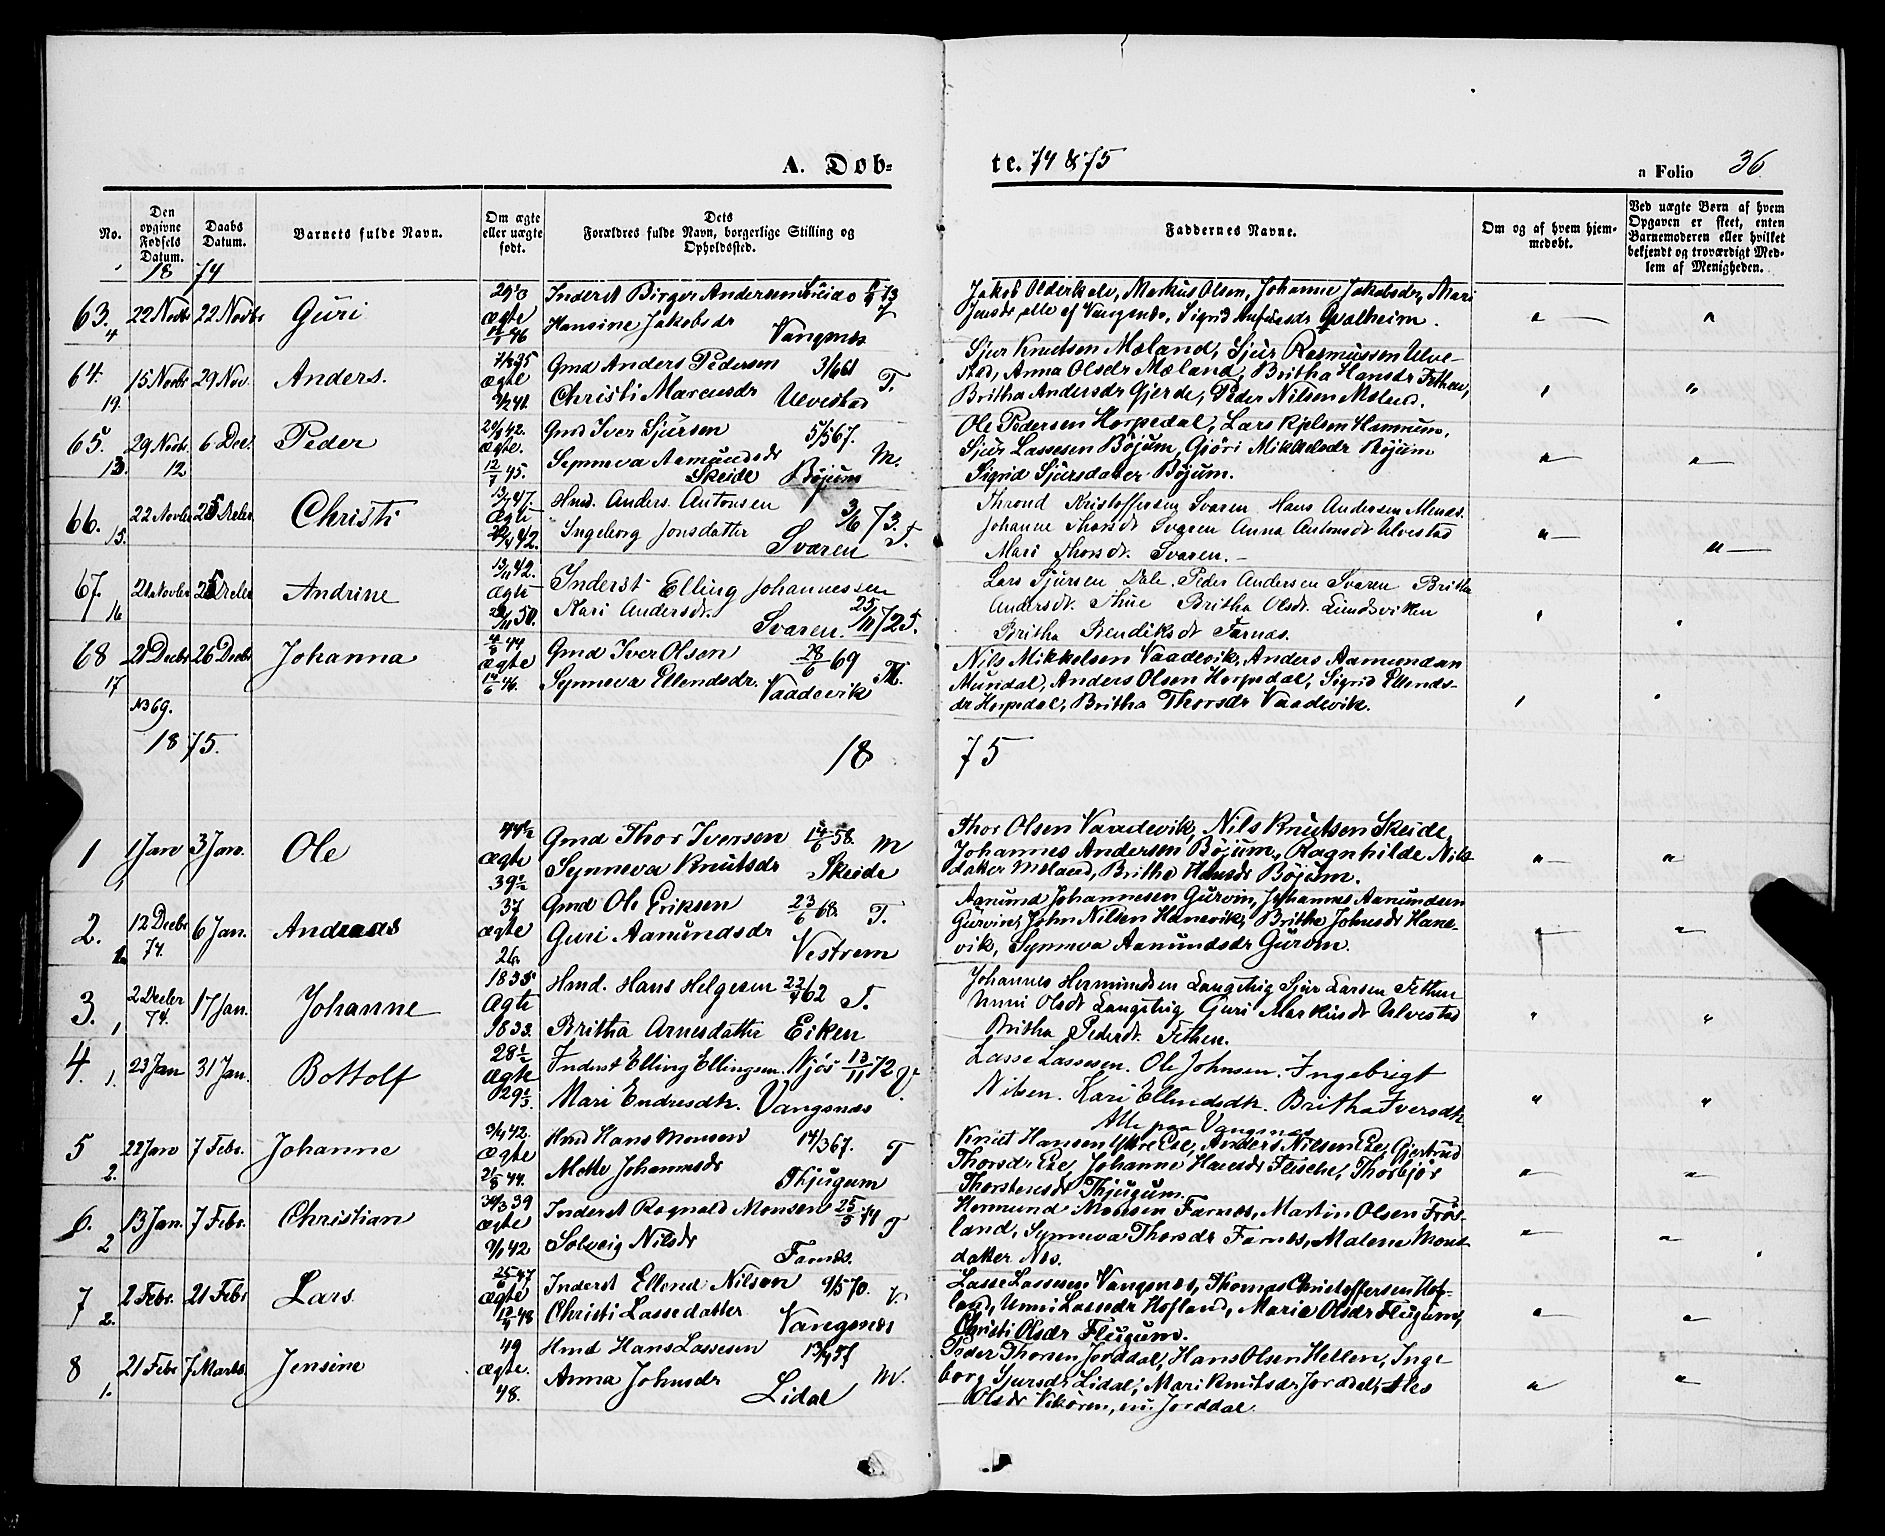 A. Döb-
te. 74 & 75
a Folio 36
No.
Den opgivne Fødsels Datum.
Daabs Datum.
Barnets fulde Navn.
Om ægte eller uægte født.
Dets
Forældres fulde Navn, borgerlige Stilling og Opholdssted.
Faddernes Navne.
Om og af hvem hjemmedøbt.
Ved uægte Børn af hvem Opgaven er skeet, enten Barnemoderen eller hvilket bekjendt og troværdigt Medlem af Menigheden.
18 74
63. 4 22 Novbr 22 Novbr Guri
ægte
Inderst Birger Andersen
Hansine Jakobsdr Vangsnæs
Jakob Olderkale, Markus Olsen, Johanne Jakobsdr, Mari
Jensdr, alle af Vangsnæs, Sigrid Qvalheim.
64. 19. 15 Novbr 29 Nov. Anders.
ægte
Gmd Anders Pedersen 3/6 61 T.
Christi Marcusdr Ulvestad
Sjur Knutsen Mæland, Sjur Rasmussen Ulve-
stad, Anna Olsdr Mæland, Britha Hansdr Fethen,
Britha Andersdr Gjerde, Peder Nilsen
65. 13. 29 Novbr. 12 6 Decbr. Peder
ægte.
12/7 45.
Gmd Iver Sjursen 5/5 67. M.
Synneva Aamundsdr
Skeide Bøjum
Ole Pedersen Horpedal, Lars Hamrum,
Sjur Lassesen Bøjum, Gjöri Mikkelsdr Bøjum
Sigrid Sjursdatter Bøjum.
66. 15. 22 Novbr 25 Decbr. Christi
ægte
Hmd. Anders Antonsen 3/6 73. T.
Ingeborg Jonsdatter Sværen
Thrond Kristoffersen Sværen Hans Andersen Menæs.
Johanne Thorsdr Sværen Anna Antonsdt Ulvestad
Mari Thorsdt. Sværen. -
67. 16 21 Novbr 25 Decbr Andrine
ægte
Inderst Elling Johannessen
Kari Andersdt. Sværen. 25/11 72 T.
Lars Sjursen Dale. Peder Andersen Sværen Britha
Andersdt. Thue Britha Olsdt. Lundsviken
Britha Bendiksdt Farnæs.
68 17 2 Decbr 26 Decbr Johanna
4/5 44
ægte
14/6 46.
Gmd Iver Olsen 28/6 69 M.
Synneva Ellendsdr. Vaadevik
Nils Mikkelsen Vaadevik, Anders Aamundsen
Mundal, Anders Olsen Horpedal, Sigrid Ellends-
dr Horpedal, Britha Thorsdr Vaadevik.
No 69.
18 75.
18 75
1 1 1 Jan 3 Jan. Ole
44 1/2
ægte
39 1/2
Gmd Thor Iversen 14/6 58. M
Synneva Knutsdr Skeide
Thor Olsen Vaadevik, Nils Knutsen Skeide
Johannes Andersen Bøjum, Ragnhilde Nils-
datter Mæland, Britha Hansdr Bøjum.
2. 12 Decbr 74. 6 Jan. Andreas
37
ægte
26.
Gmd Ole Eriksen 23/6 68. T.
Guri Aamundsdr Vestrem
Aamund Johannesen Gurvin, Johannes Aamundsen
Gurvin, John Nilsen Hanevik, Britha Johnsdr Hane-
vik, Synneva Aamundsdr Gurvin.
3. 1 2 Decbr 74. 17 Jan. Johanne
1835
Ægte
1833.
Hmd. Hans Helgesen 22/4 62 T.
Britha Arnesdatter Eiken
Johannes Hermundsen Langeteig Sjur Larsen Fethen
Unni Olsdt Langeteig Guri Markusdt Ulvestad
Britha Pedersdt. Fethen.
4. 1. 23 Jan 31 Jan. Bottolf
28 1/2
Ægte
29 2/3.
Inderst Elling Ellingsen. Njøs 13/11 72 V.
Mari Endresdtr. Vangsnæs
Lasse Lassesen. Ole Johnsen. Ingebrigt
Nilsen. Kari Ellendsdtr. Britha Iversdtr
Alle paa Vangsnæs
5 2. 22 Jan 7 Febr. Johanne
ægte
Hmd Hans Monsen 14/3 67. T
Mette Johannesdr Thjugum
Knut Hansen Ytre Ese, Anders Nilsen Ese, Gjertrud
Thorsdr Ese, Johanne Hansdr Flesche, Thorbjör
Thorstensdr Thjugum.
6. 2 13 Jan. 7 Febr. Christian
30/3 39
ægte
Inderst Rognald Monsen 25/5 74 T
Solveig Nilsdr Farnæs.
Hermund Monsen Farnæs, Martin Olsen Frös-
land, Synneva Thorsdr Farnæs, Malene Mons-
datter Nes.
7 2. 2 Febr. 21 Febr Lars
25/6 47
ægte
12/4 48
Inderst Ellend Nilsen 9/5 70. V.
Christi Lassedatter Vangsnæs
Lasse Lassesen Vangsnæs, Thomas Christoffersen Hof-
land, Unni Lassedr Hofland, Marie Olsdr Flugum,
Christi Olsdr Flugum.
8 1. 21 Febr 7 Marts. Jensine
49
ægte.
48.
Hmd Hans Lassesen M.
Anna Johnsdr Lidal
Peder Thorsen Jorddal, Hans Olsen Hellen, Inge-
borg Sjursdr Lidal, Mari Knutsdr Jorddal,
Olsdr Vikören, nu Jorddal.